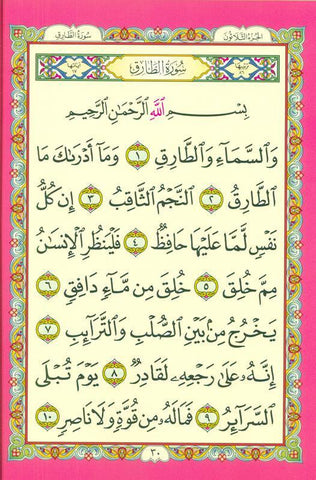 سُورَةُ الطَّارِقِ الجُزْءُ الثَّلَاثُونَ
سُورَةُ الطَّارِقِ
بِسْمِ اللَّهِ الرَّحْمَٰنِ الرَّحِيمِ
وَالسَّمَاءِ وَالطَّارِقِ ١ وَمَا أَدْرَىٰكَ مَا
الطَّارِقُ ٢ النَّجْمُ الثَّاقِبُ ٣ إِن كُلُّ
نَفْسٍ لَّمَّا عَلَيْهَا حَافِظٌ ٤ فَلْيَنظُرِ الْإِنسَٰنُ
مِمَّ خُلِقَ ٥ خُلِقَ مِن مَّاءٍ دَافِقٍ ٦
يَخْرُجُ مِنۢ بَيْنِ الصُّلْبِ وَالتَّرَائِبِ ٧
إِنَّهُۥ عَلَىٰ رَجْعِهِۦ لَقَادِرٌ ٨ يَوْمَ تُبْلَى
السَّرَائِرُ ٩ فَمَا لَهُۥ مِن قُوَّةٍ وَلَا نَاصِرٍ ١٠
٣٠